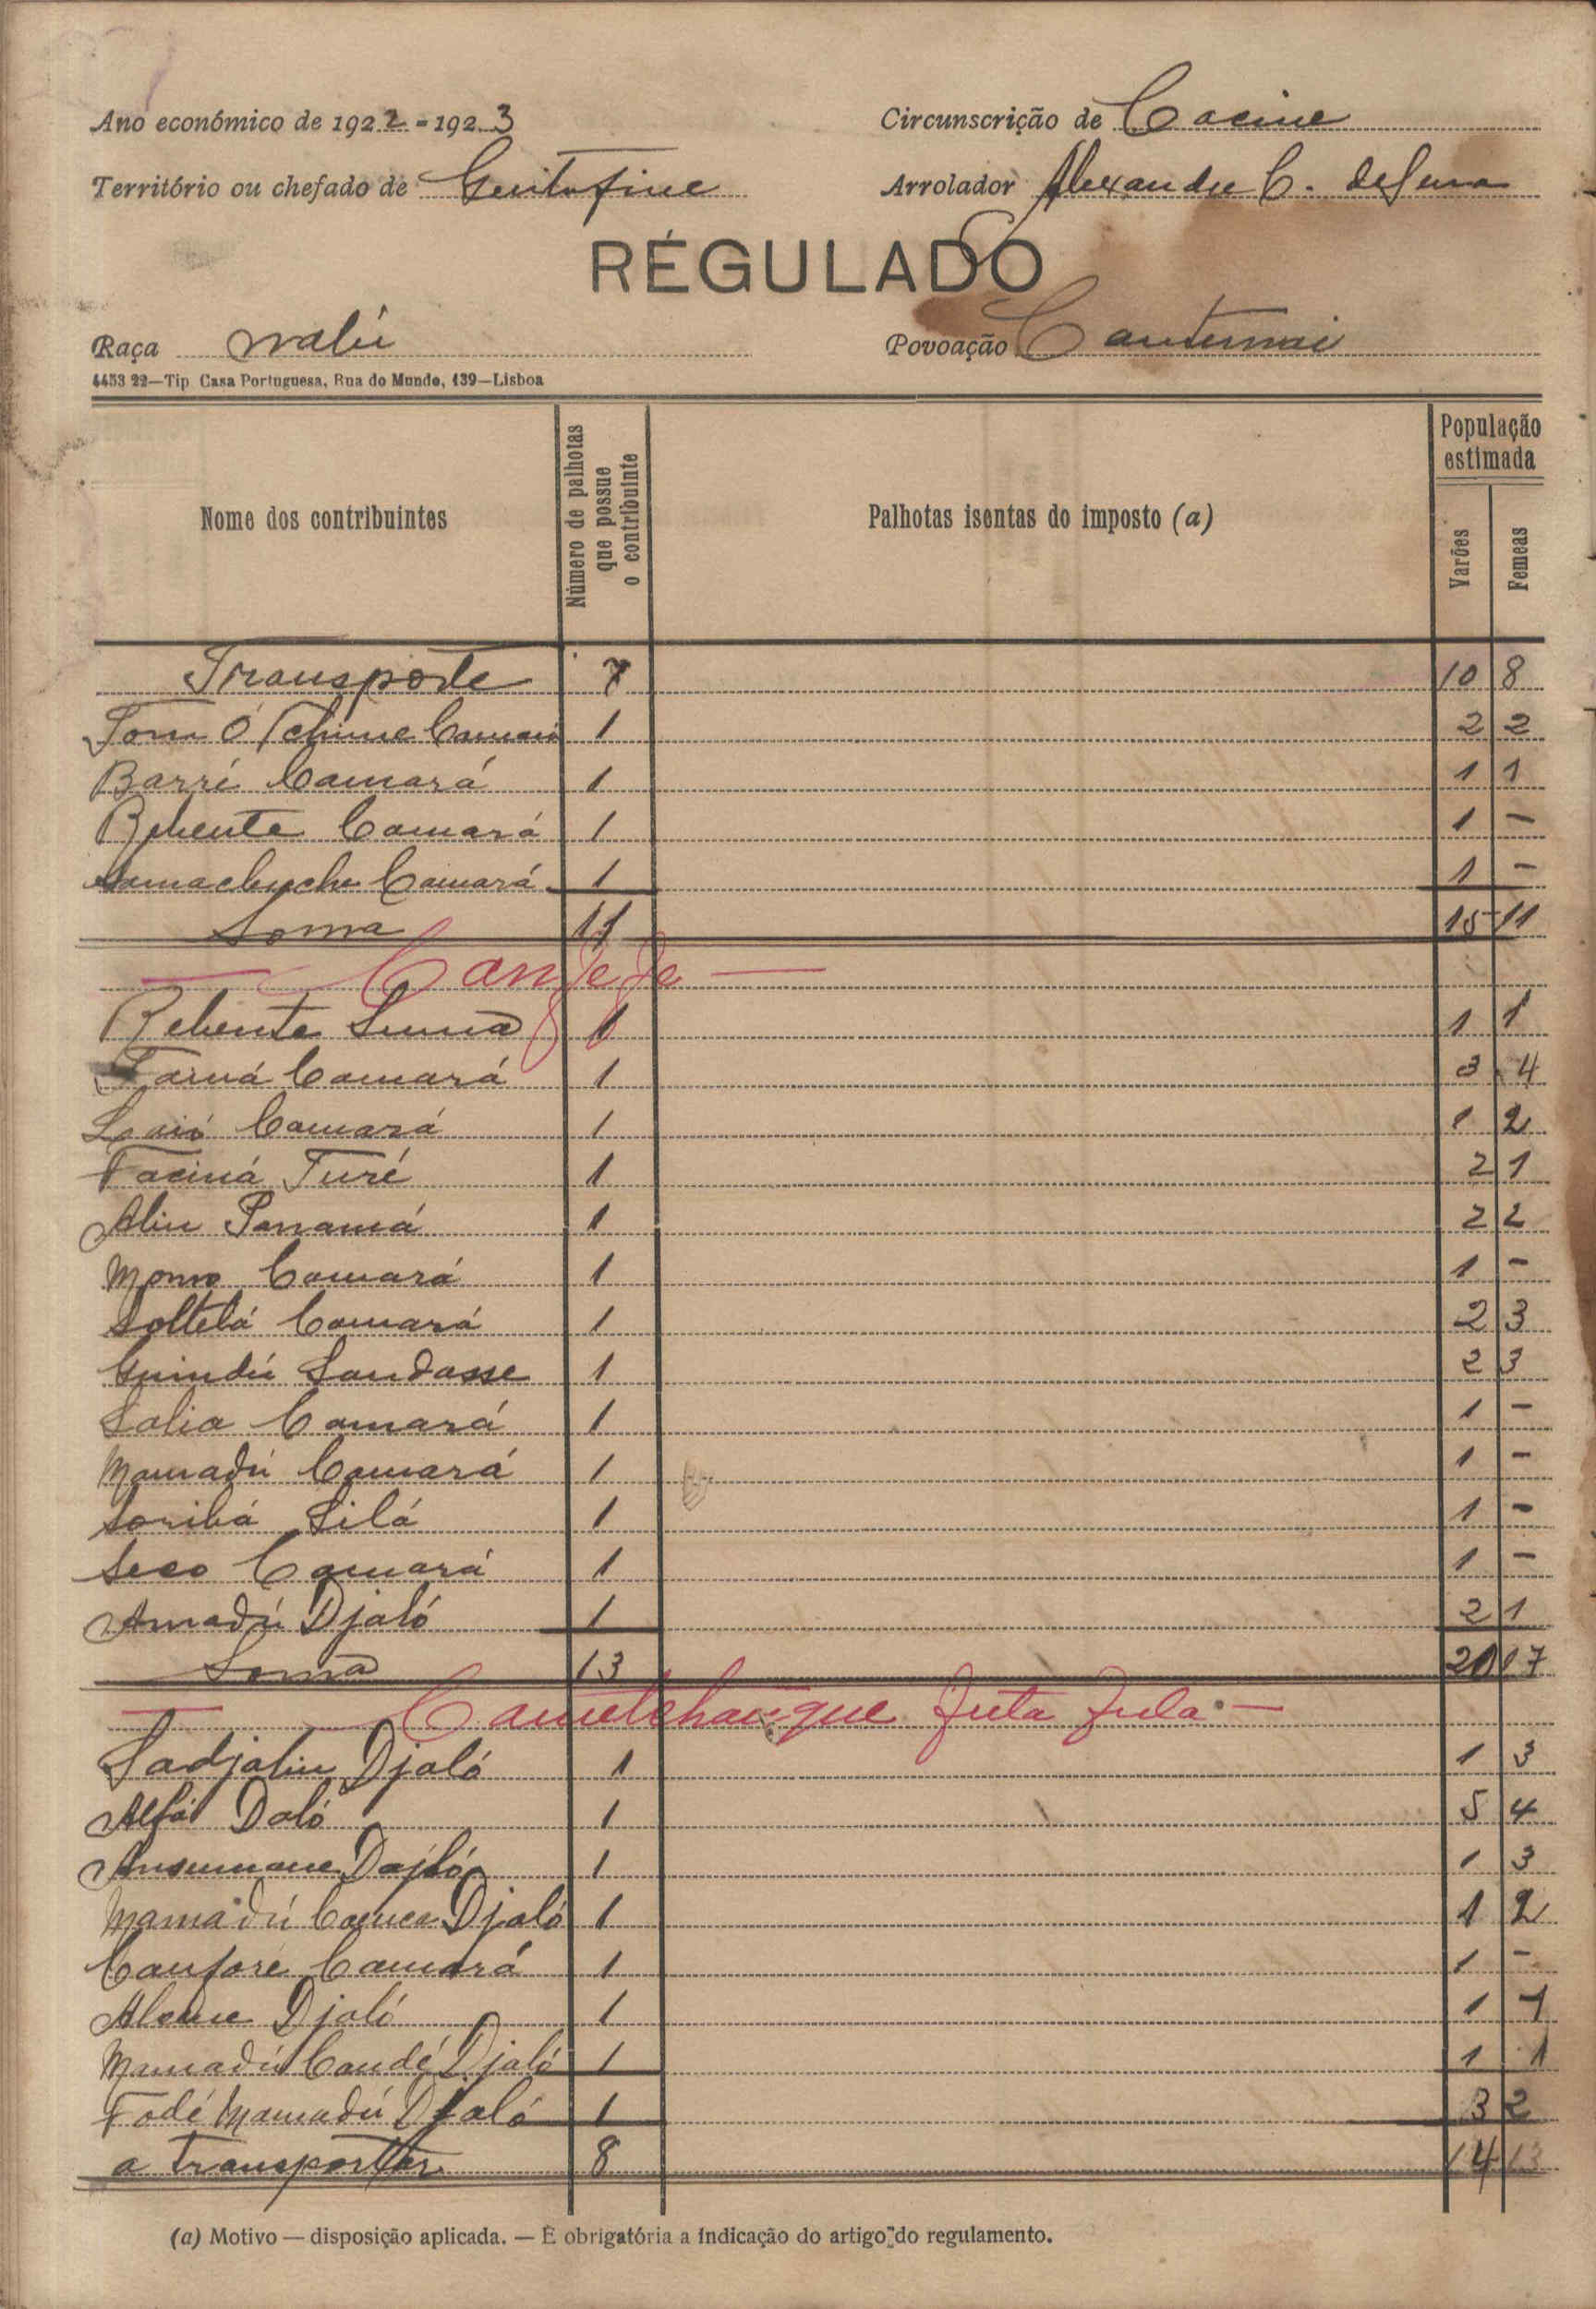 Ano económico de 1922-1923
Circunscrição de Cacine
Território ou chefado de Guitafine
Arrolador Alexandre C. de Sena
RÉGULADO
Raça nalú
Povoação
4453 22—Tip Casa Portuguesa, Rua do Mundo, 139—Lisboa
Nome dos contribuintes
Número de palhotas que possue o contribuinte
Palhotas isentas do imposto (a)
População estimada
Varões
Femeas
Transporte 7 10 8
Tom Ó 1 2 2
Barré Camará 1 1 1
Camará 1 1 -
Camará 1 1 -
Soma 11 15 11
— Canfefe —
1 1 1
Camará 1 3 4
Camará 1 1 2
Faciná Turé 1 2 1
Aliu 1 2 2
Momo Camará 1 1 -
Camará 1 2 3
Guindú Sandasse 1 2 3
Salia Camará 1 1 -
Mamadú Camará 1 1 -
Soribá Silá 1 1 -
Seco Camará 1 1 -
Amadú Djaló 1 2 1
Soma 13 20 17
— Cametchanque futa fula —
Sadjaliu Djaló 1 1 3
Alfá Daló 1 5 4
Ansumane Dajló 1 1 3
Mamadú Djaló 1 1 2
Canforé Camará 1 1 -
Djaló 1 1 1
Mamadú Candé Djaló 1 1 1
Fodé Mamadú Djaló 1 3 2
a transportar 8 14 13
(a) Motivo — disposição aplicada. — É obrigatória a indicação do artigo do regulamento.